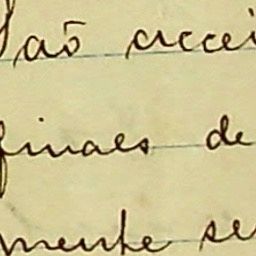 São accei
finaes de
mente se